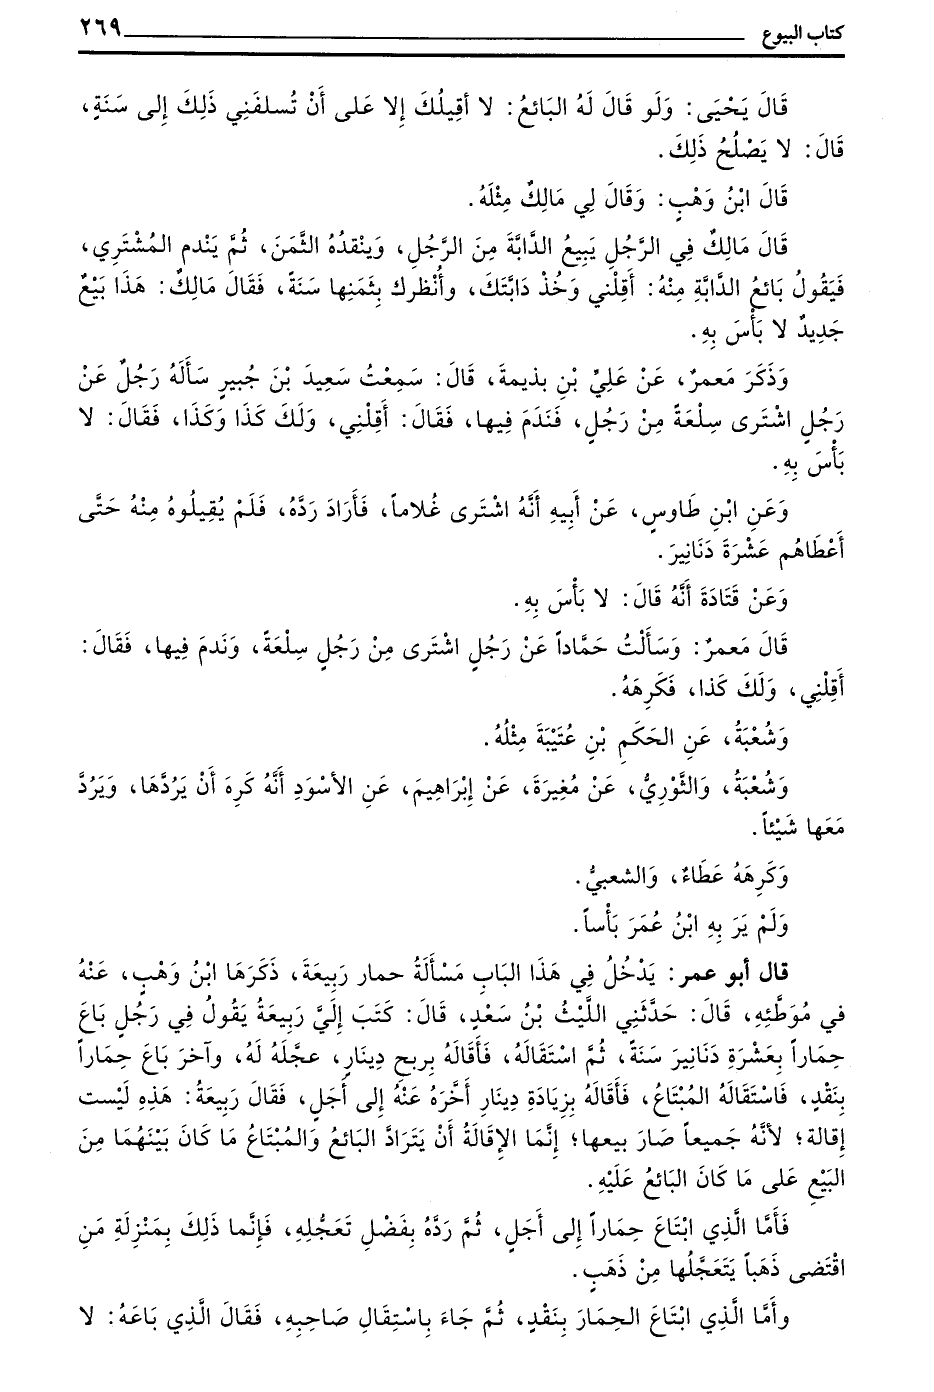 كتاب البيوع ٢٦٩
قَالَ يَحْيَى: وَلَو قَالَ لَهُ البَائِعُ: لا أقِيلُكَ إِلا عَلى أَنْ تُسلفَنِي ذَلِكَ إِلى سَنَةٍ،
قَالَ: لا يَصْلُحُ ذَلِكَ.
قَالَ ابْنُ وَهْبٍ: وَقَالَ لِي مَالِكٌ مِثْلَهُ.
قَالَ مَالِكٌ فِي الرَّجُلِ يَبِيعُ الدَّابَّةَ مِنَ الرَّجُلِ، وَيَنْقدُهُ الثَّمَنَ، ثُمَّ يَندم المُشْتَرِي،
فَيَقُولُ بَائعُ الدَّابَّةِ مِنْهُ: أَقِلْني وَخُذْ دَابَّتَكَ، وأُنْظرك بِثَمَنِها سَنَةً، فَقَالَ مَالِكٌ: هَذَا بَيْعٌ
جَدِيدٌ لا بَأْسَ بِهِ.
وَذَكَرَ مَعمرٌ، عَنْ عَليِّ بْنِ بذيمةَ، قَالَ: سَمِعْتُ سَعِيدَ بْنَ جُبيرٍ سَأَلَهُ رَجُلٌ عَنْ
رَجُلٍ اشْتَرى سِلْعَةً مِنْ رَجُلٍ، فَنَدَمَ فِيها، فَقَالَ: أَقِلْنِي، وَلَكَ كَذَا وَكَذَا، فَقَالَ: لا
بَأْسَ بِهِ.
وَعَنِ ابْنِ طَاوسٍ، عَنْ أَبِيهِ أَنَّهُ اشْتَرى غُلاماً، فَأَرَادَ رَدَّهُ، فَلَمْ يُقِيلُوهُ مِنْهُ حَتَّى
أَعْطَاهُم عَشْرَةَ دَنَانِيرَ.
وَعَنْ قَتَادَةَ أَنَّهُ قَالَ: لا بَأْسَ بِهِ.
قَالَ مَعمرٌ: وَسَأَلْتُ حَمَّاداً عَنْ رَجُلٍ اشْتَرى مِنْ رَجُلٍ سِلْعَةً، وَنَدمَ فِيها، فَقَالَ:
أَقِلْنِي، وَلَكَ كَذا، فَكَرِهَهُ.
وَشُعْبَةُ، عَنِ الحَكَمِ بْنِ عُتَيْبَةَ مِثْلُهُ.
وَشُعْبَةُ، وَالثَّوْرِيُّ، عَنْ مُغِيرَةَ، عَنْ إِبْرَاهِيمَ، عَنِ الأسْوَدِ أَنَّهُ كَرِهَ أَنْ يَرُدَّهَا، وَيَرُدَّ
مَعَها شَيْئاً.
وَكَرِهَهُ عَطَاءٌ، وَالشعبيُّ.
وَلَمْ يَرَ بِهِ ابْنُ عُمَرَ بَأْساً.
قال أبو عمر: يَدْخُلُ فِي هَذَا البَابِ مَسْأَلَةُ حمار رَبِيعَةَ، ذَكَرَهَا ابْنُ وَهْبٍ، عَنْهُ
في مُوَطَّئِهِ، قَالَ: حَدَّثَنِي اللَّيْثُ بْنُ سَعْدٍ، قَالَ: كَتَبَ إِلَيَّ رَبِيعَةُ يَقُولُ فِي رَجُلٍ بَاعَ
حِمَاراً بِعَشْرَةِ دَنَانِيرَ سَنَةً، ثُمَّ اسْتَقَالَهُ، فَأَقَالَهُ بِربحِ دِينَارٍ، عجَّلَهُ لَهُ، وآخرَ بَاعَ حِمَاراً
بِنَقْدٍ، فَاسْتَقَالَهُ المُبْتَاعُ، فَأَقَالَهُ بِزِيَادَةِ دِينَارٍ أَخَّرَهُ عَنْهُ إِلى أَجَلٍ، فَقَالَ رَبِيعَةُ: هَذِهِ لَيْست
إِقالة؛ لأنَّهُ جَمِيعاً صَارَ بيعها؛ إِنَّمَا الإِقَالَةُ أَنْ يَتَرَادَّ البَائِعُ وَالمُبْتَاعُ مَا كَانَ بَيْنَهُمَا مِنَ
البَيْعِ عَلى مَا كَانَ البَائعُ عَلَيْهِ.
فَأَمَّا الَّذِي ابْتَاعَ حِمَاراً إِلى أَجَلٍ، ثُمَّ رَدَّهُ بِفَضْلِ تَعَجُّلِهِ، فَإِنَّما ذَلِكَ بِمَنْزِلَةِ مَنِ
اقْتَضى ذَهَباً يَتَعَجَّلُها مِنْ ذَهَبٍ.
وأَمَّا الَّذِي ابْتَاعَ الحِمَارَ بِنَقْدٍ، ثُمَّ جَاءَ بِاسْتِقَالِ صَاحِبِهِ، فَقَالَ الَّذِي بَاعَهُ: لا